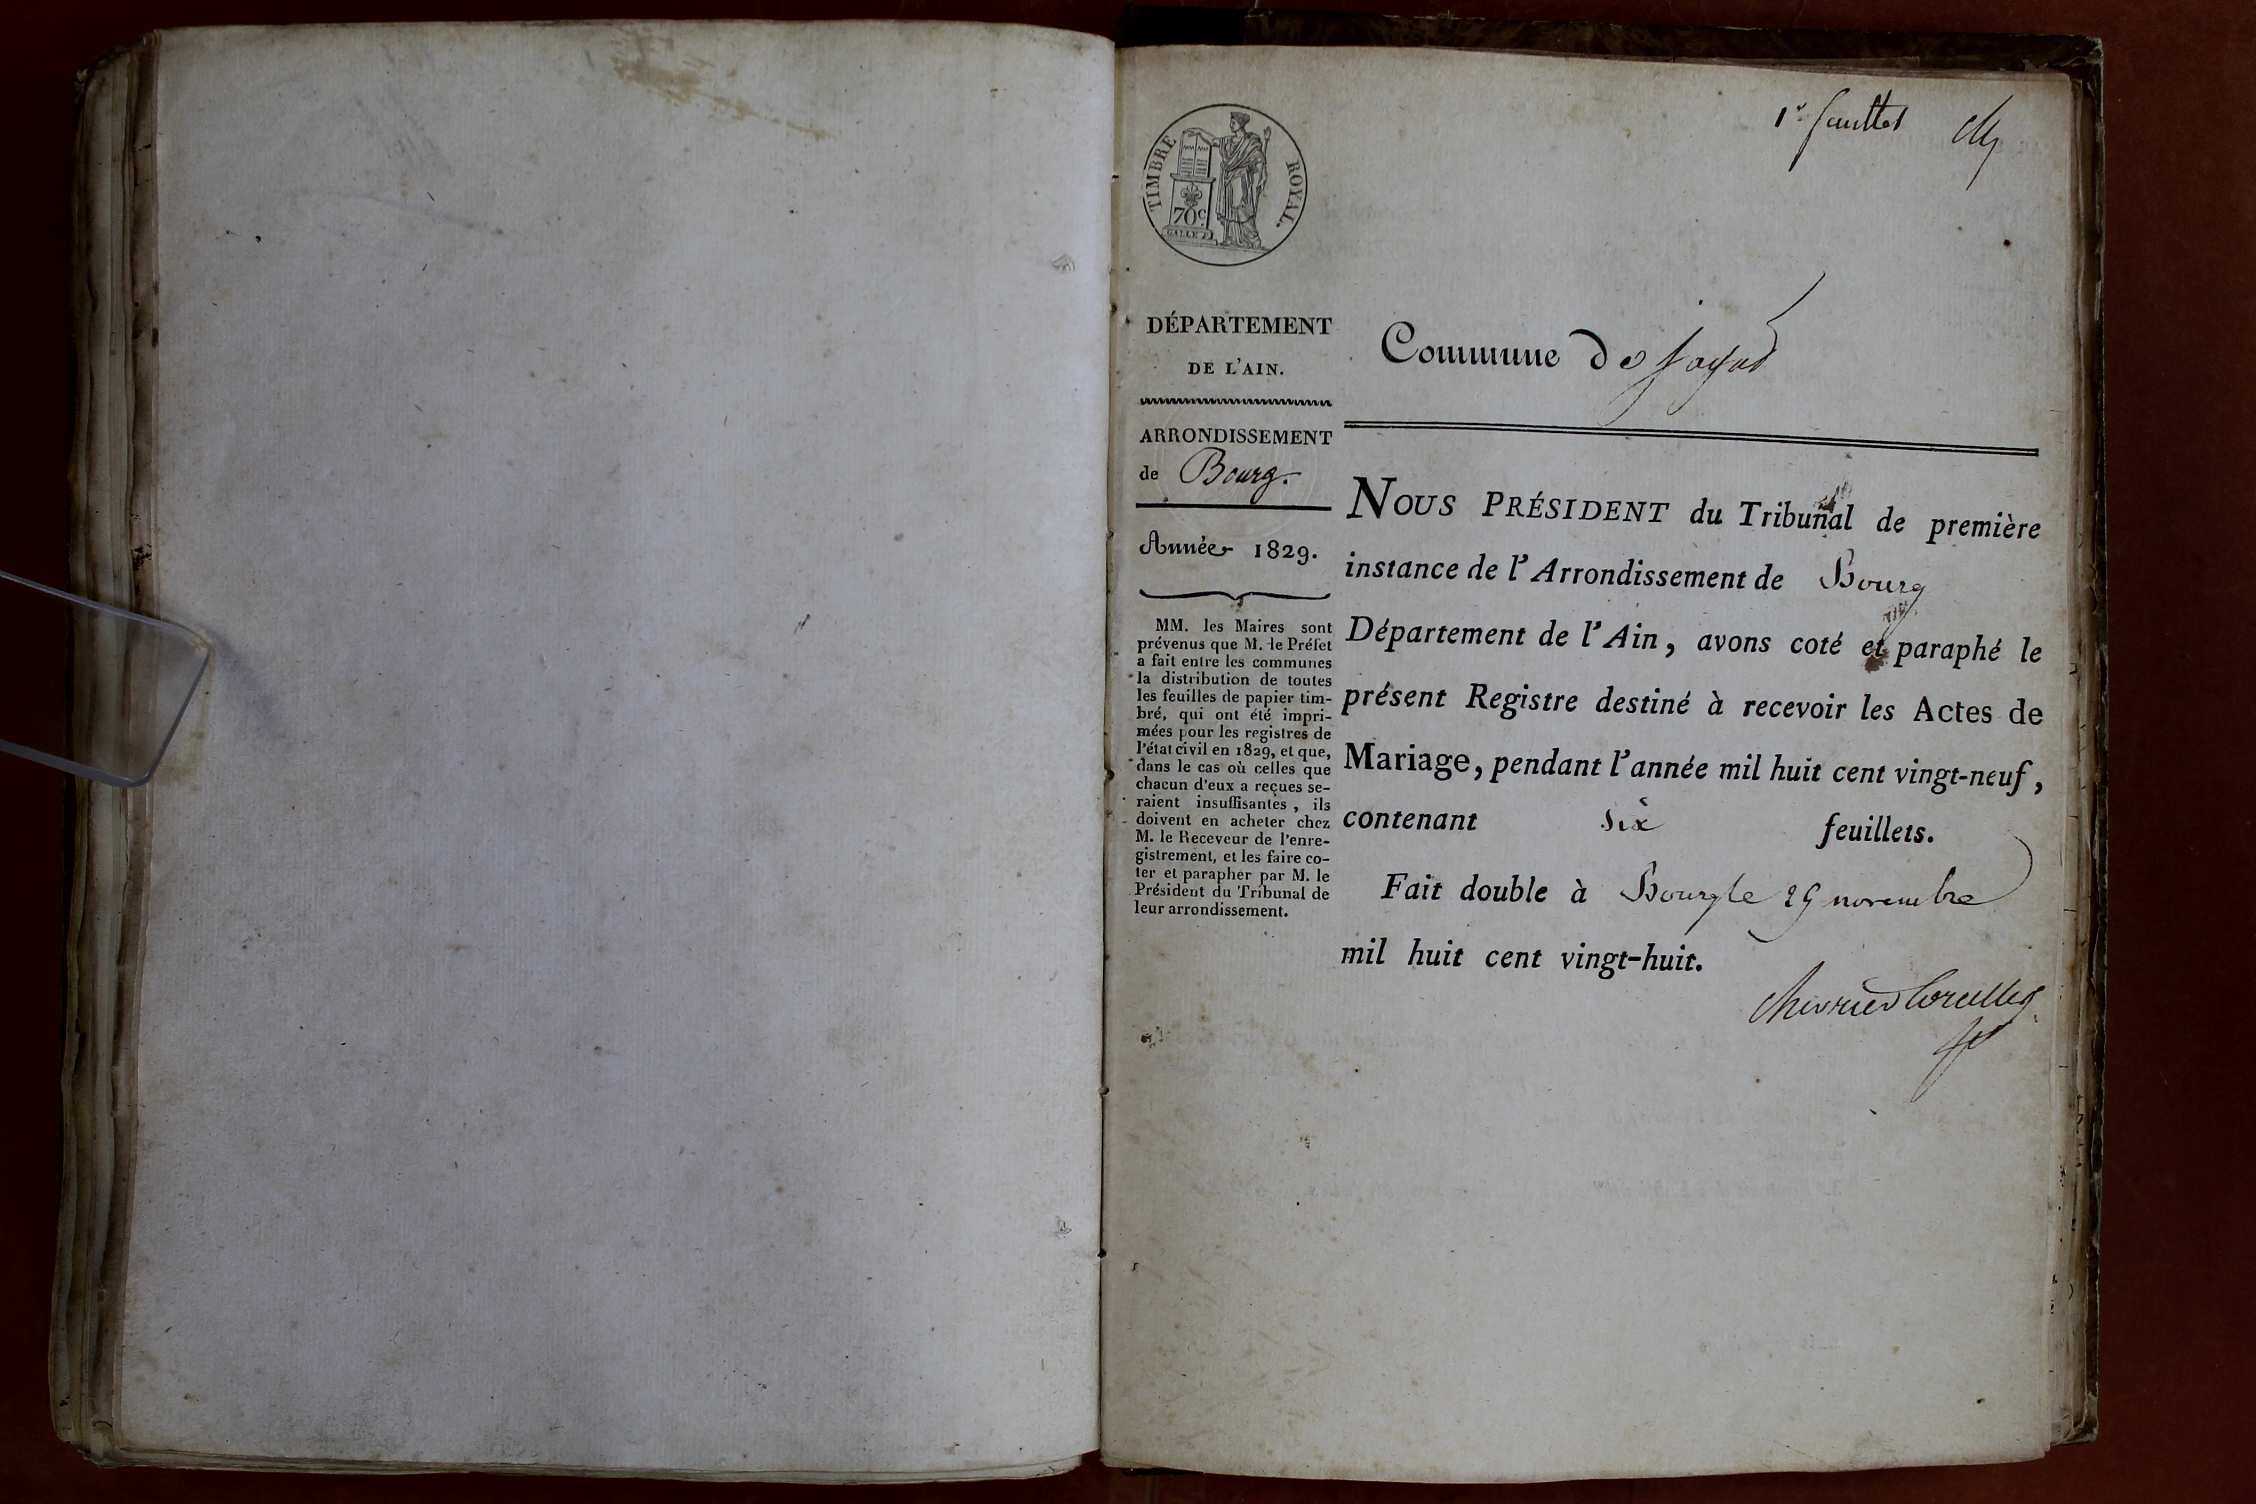 1r feuillet
TIMBRE ROYAL.
70c
GALLE
DÉPARTEMENT
DE L'AIN.
ARRONDISSEMENT
de Bourg.
Année 1829.
MM. les Maires sont
prévenus que M. le Préfet
a fait entre les communes
la distribution de toutes
les feuilles de papier tim-
bré, qui ont été impri-
mées pour les registres de
l'état civil en 1829, et que,
dans le cas où celles que
chacun d'eux a reçues se-
raient insuffisantes, ils
doivent en acheter chez
M. le Receveur de l'enre-
gistrement, et les faire co-
ter et parapher par M. le
Président du Tribunal de
leur arrondissement.
Commune de Jayat
NOUS PRÉSIDENT du Tribunal de première
instance de l'Arrondissement de Bourg
Département de l'Ain, avons coté et paraphé le
présent Registre destiné à recevoir les Actes de
Mariage, pendant l'année mil huit cent vingt-neuf,
contenant six feuillets.
Fait double à Bourg le 29 novembre
mil huit cent vingt-huit.